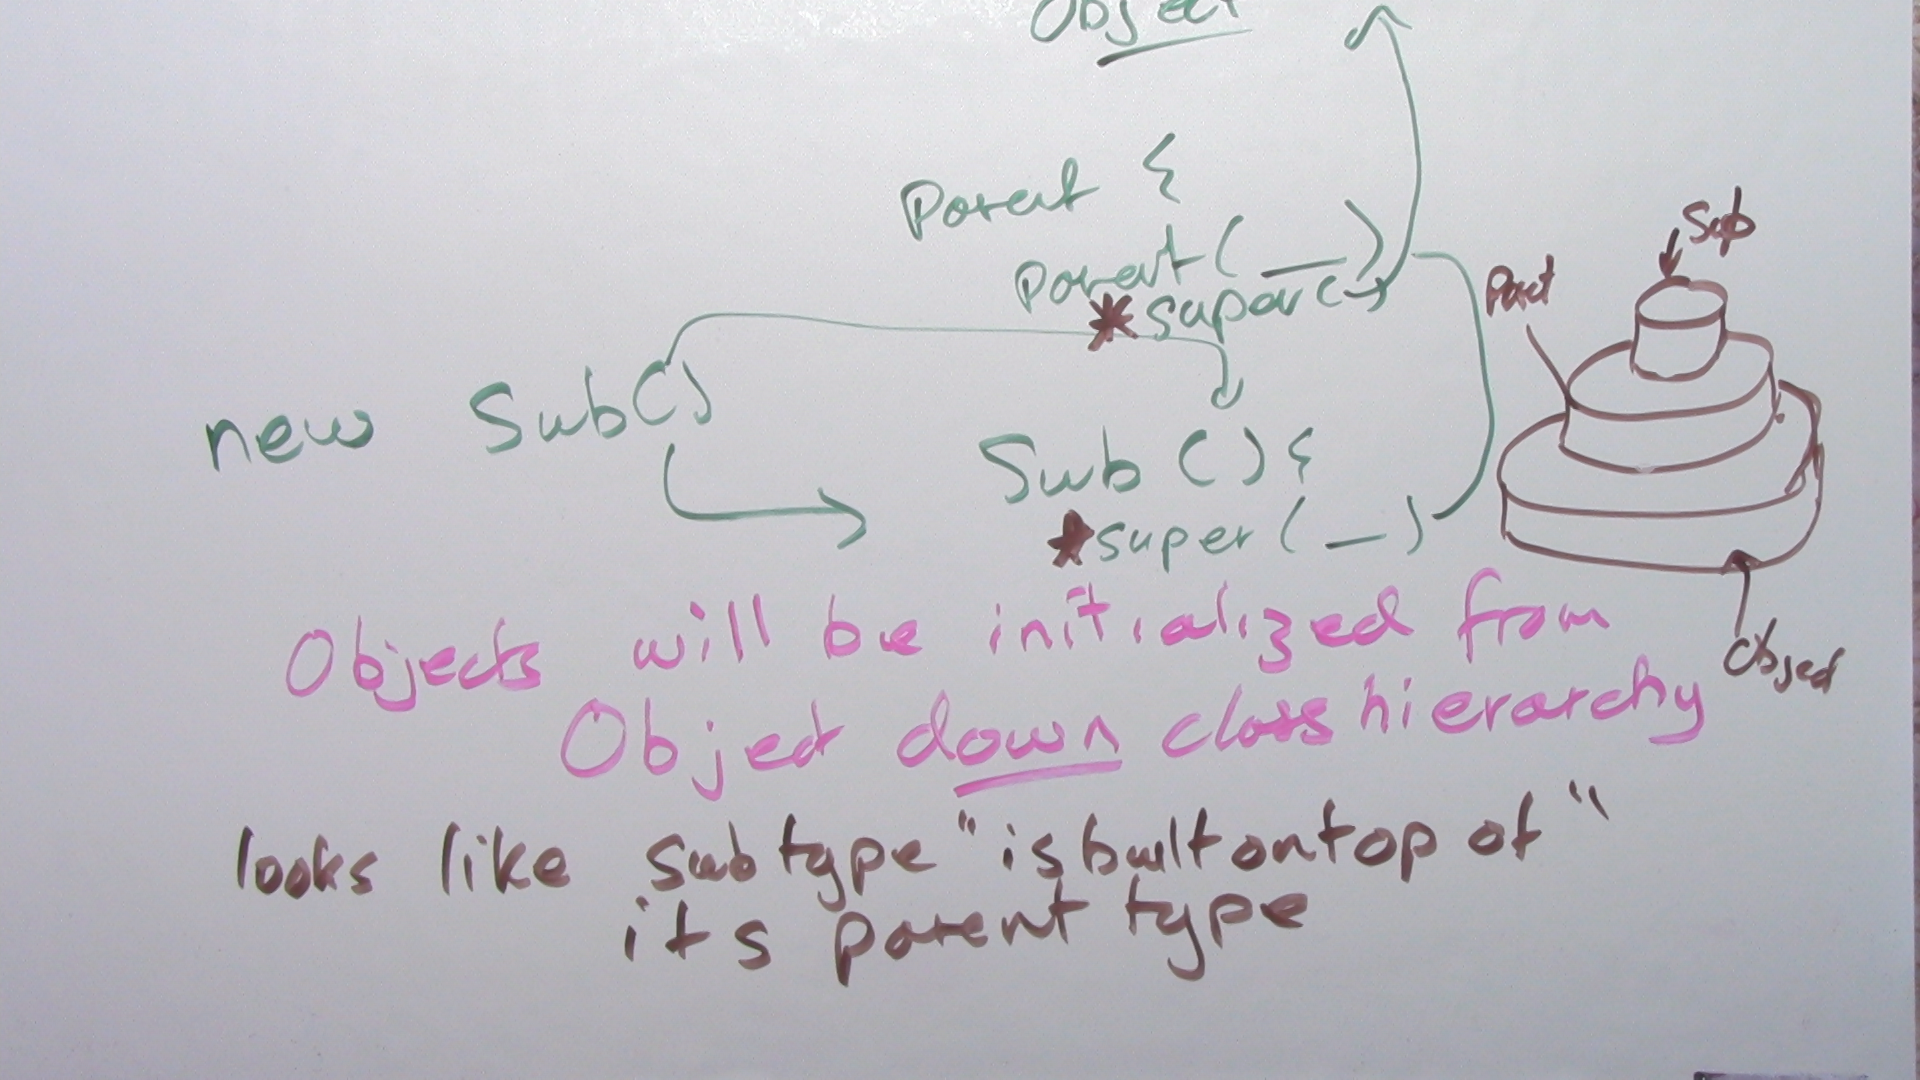 Object
Parent {
Parent( __ )
* super( )
Sub
new Sub()
Sub () {
* super ( _ )
Objects will be initialized from
Object down class hierarchy
Object
looks like subtype "is built on top of"
its parent type